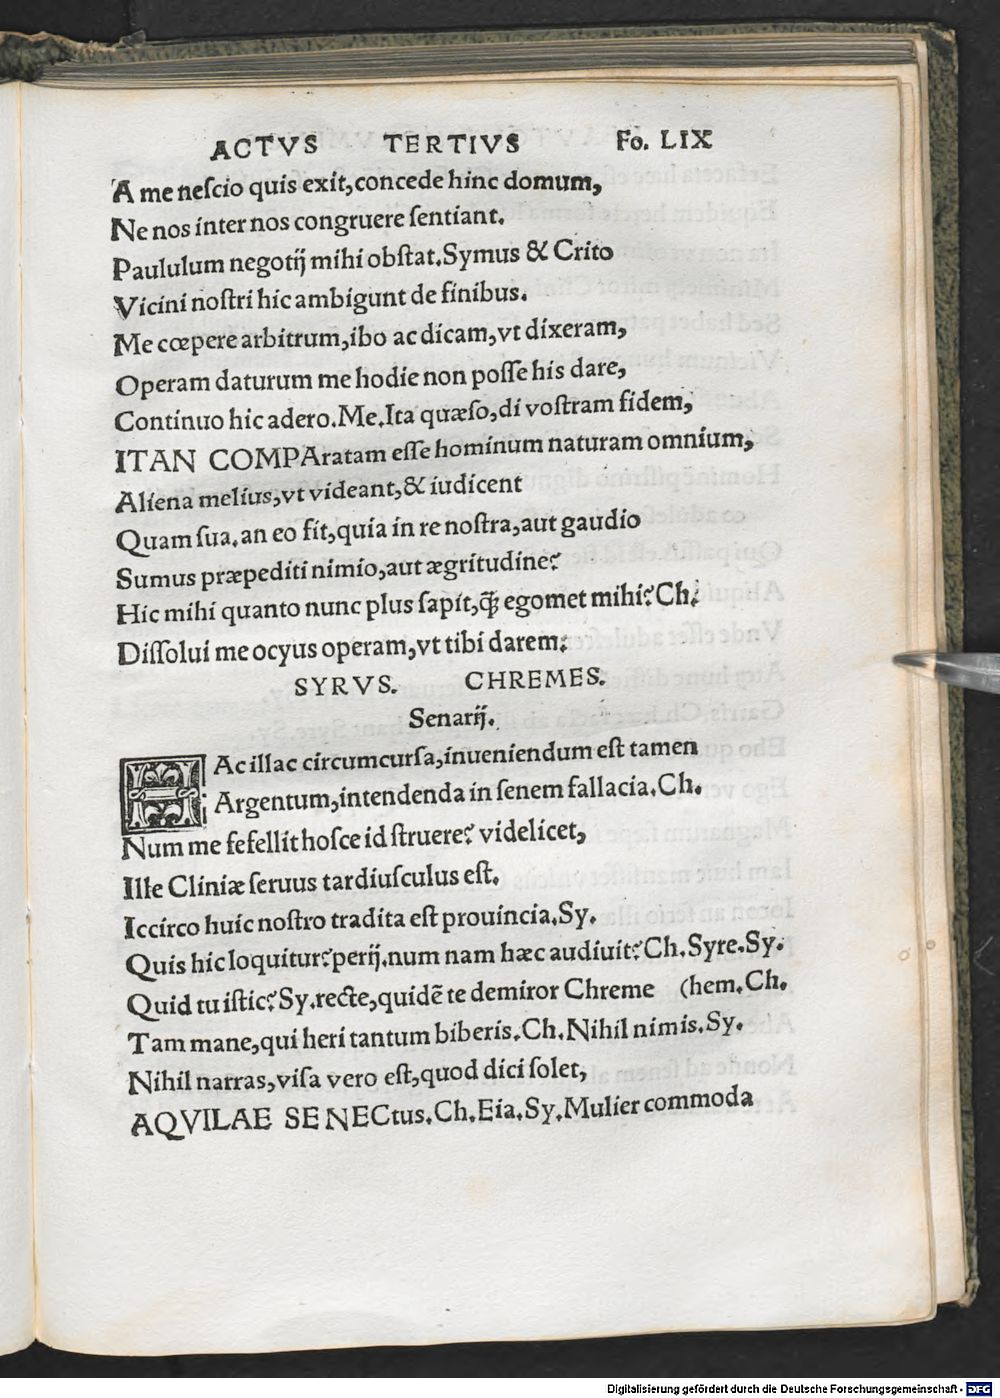 ACTVS TERTIVS Fo. LIX
A me neſcio quis exit,concede hinc domum,
Ne nos inter nos congruere ſentiant.
Paululum negotij mihi obſtat.Symus & Crito
Vicini noſtri hic ambigunt de finibus.
Me cœpere arbitrum,ibo ac dicam,vt dixeram,
Operam daturum me hodie non poſſe his dare,
Continuo hic adero.Me.Ita quæſo,di voſtram fidem,
ITAN COMPAratam eſſe hominum naturam omnium,
Aliena melius,vt videant,& iudicent
Quam ſua.an eo fit,quia in re noſtra,aut gaudio
Sumus præpediti nimio,aut ægritudine?
Hic mihi quanto nunc plus ſapit,q̃ꝫ egomet mihi?Ch.
Diſſolui me ocyus operam,vt tibi darem:
SYRVS. CHREMES.
Senarij.
HAc illac circumcurſa,inueniendum eſt tamen
Argentum,intendenda in ſenem fallacia.Ch.
Num me fefellit hoſce id ſtruere? videlicet,
Ille Cliniæ ſeruus tardiuſculus eſt.
Iccirco huic noſtro tradita eſt prouincia.Sy.
Quis hic loquitur?perij.num nam hæc audiuit?Ch.Syre.Sy.
Quid tu iſtic?Sy.recte,quidē te demiror Chreme (hem.Ch.
Tam mane,qui heri tantum biberis.Ch.Nihil nimis.Sy.
Nihil narras,viſa vero eſt,quod dici ſolet,
AQVILAE SENECtus.Ch.Eia.Sy.Mulier commoda
Digitalisierung gefördert durch die Deutsche Forschungsgemeinschaft - DFG